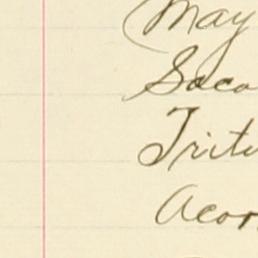 May
Soco
Tritu
Acor